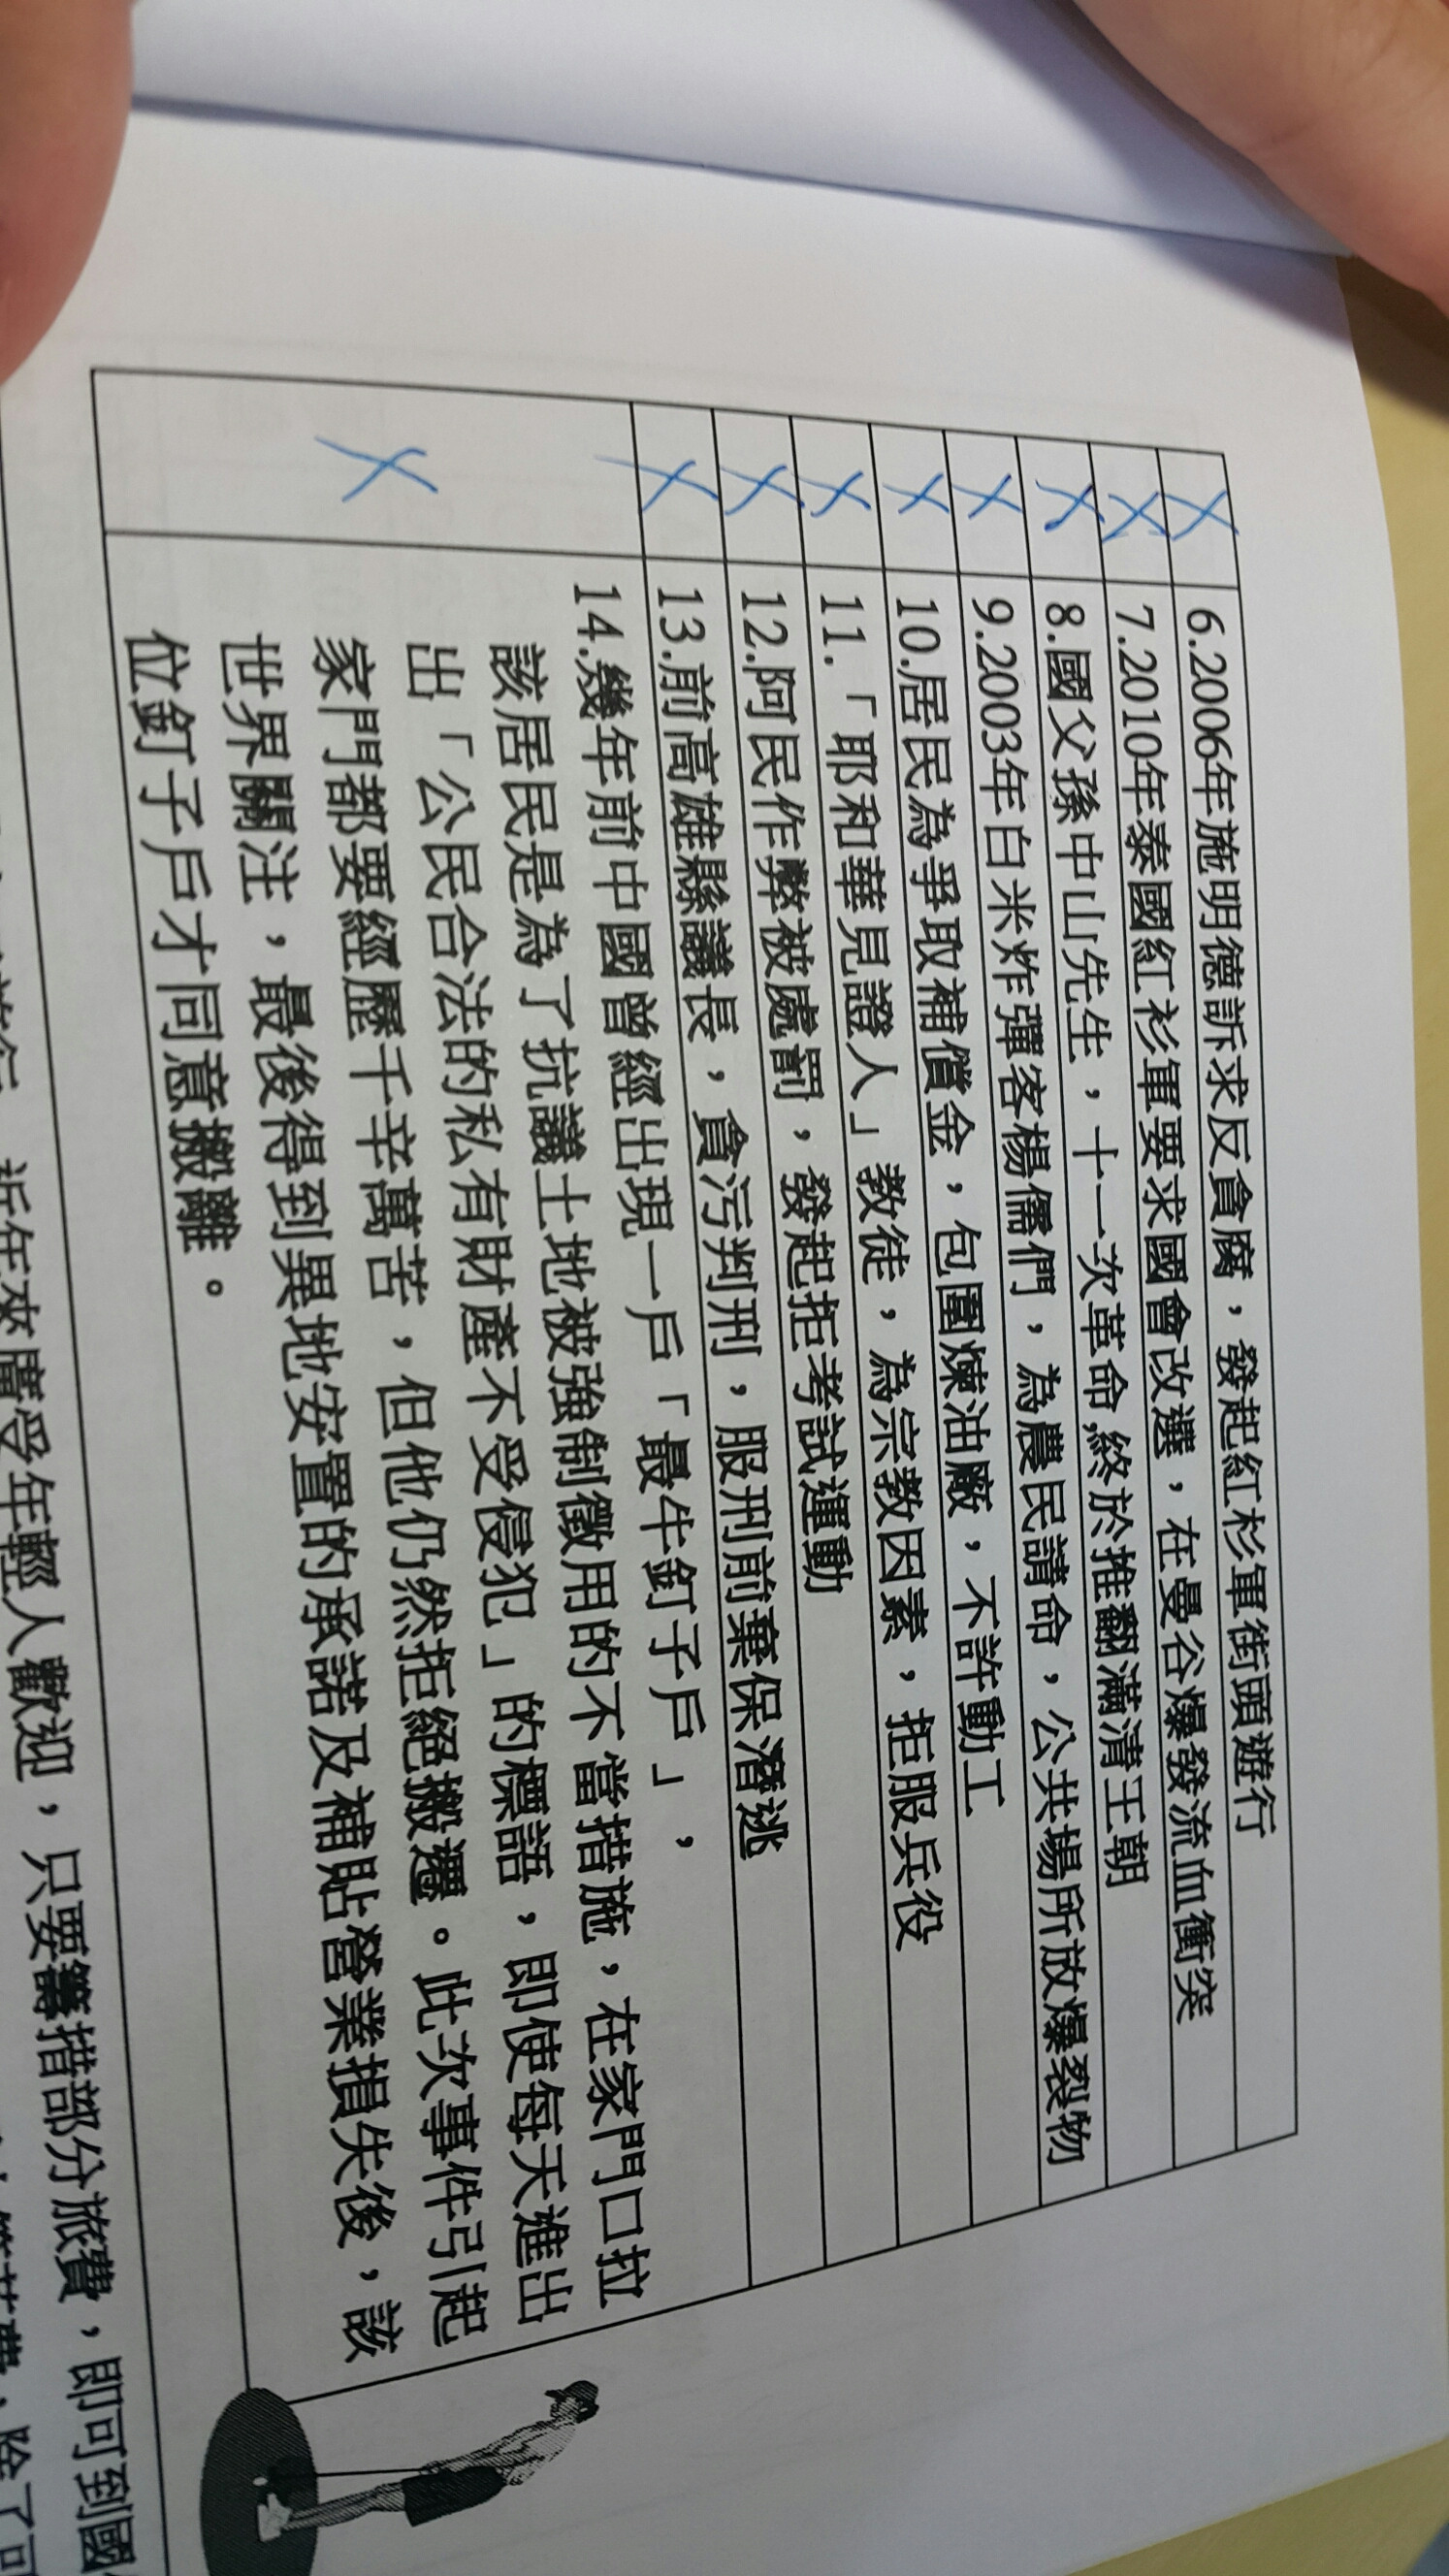 6.2006年施明德訴求反貪腐，發起紅杉軍街頭遊行
7.2010年泰國紅衫軍要求國會改選，在曼谷爆發流血衝突
8.國父孫中山先生，十一次革命,終於推翻滿清王朝
9.2003年白米炸彈客楊儒們，為農民請命，公共場所放爆裂物
10.居民為爭取補償金，包圍煉油廠，不許動工
11.「耶和華見證人」教徒，為宗教因素，拒服兵役
12.阿民作弊被處罰，發起拒考試運動
13.前高雄縣議長，貪污判刑，服刑前棄保潛逃
14.幾年前中國曾經出現一戶「最牛釘子戶」，
該居民是為了抗議土地被強制徵用的不當措施，在家門口拉
出「公民合法的私有財產不受侵犯」的標語，即使每天進出
家門都要經歷千辛萬苦，但他仍然拒絕搬遷。此次事件引起
世界關注，最後得到異地安置的承諾及補貼營業損失後，該
位釘子戶才同意搬離。
近年來廣受年輕人歡迎，只要籌措部分旅費，即可到國